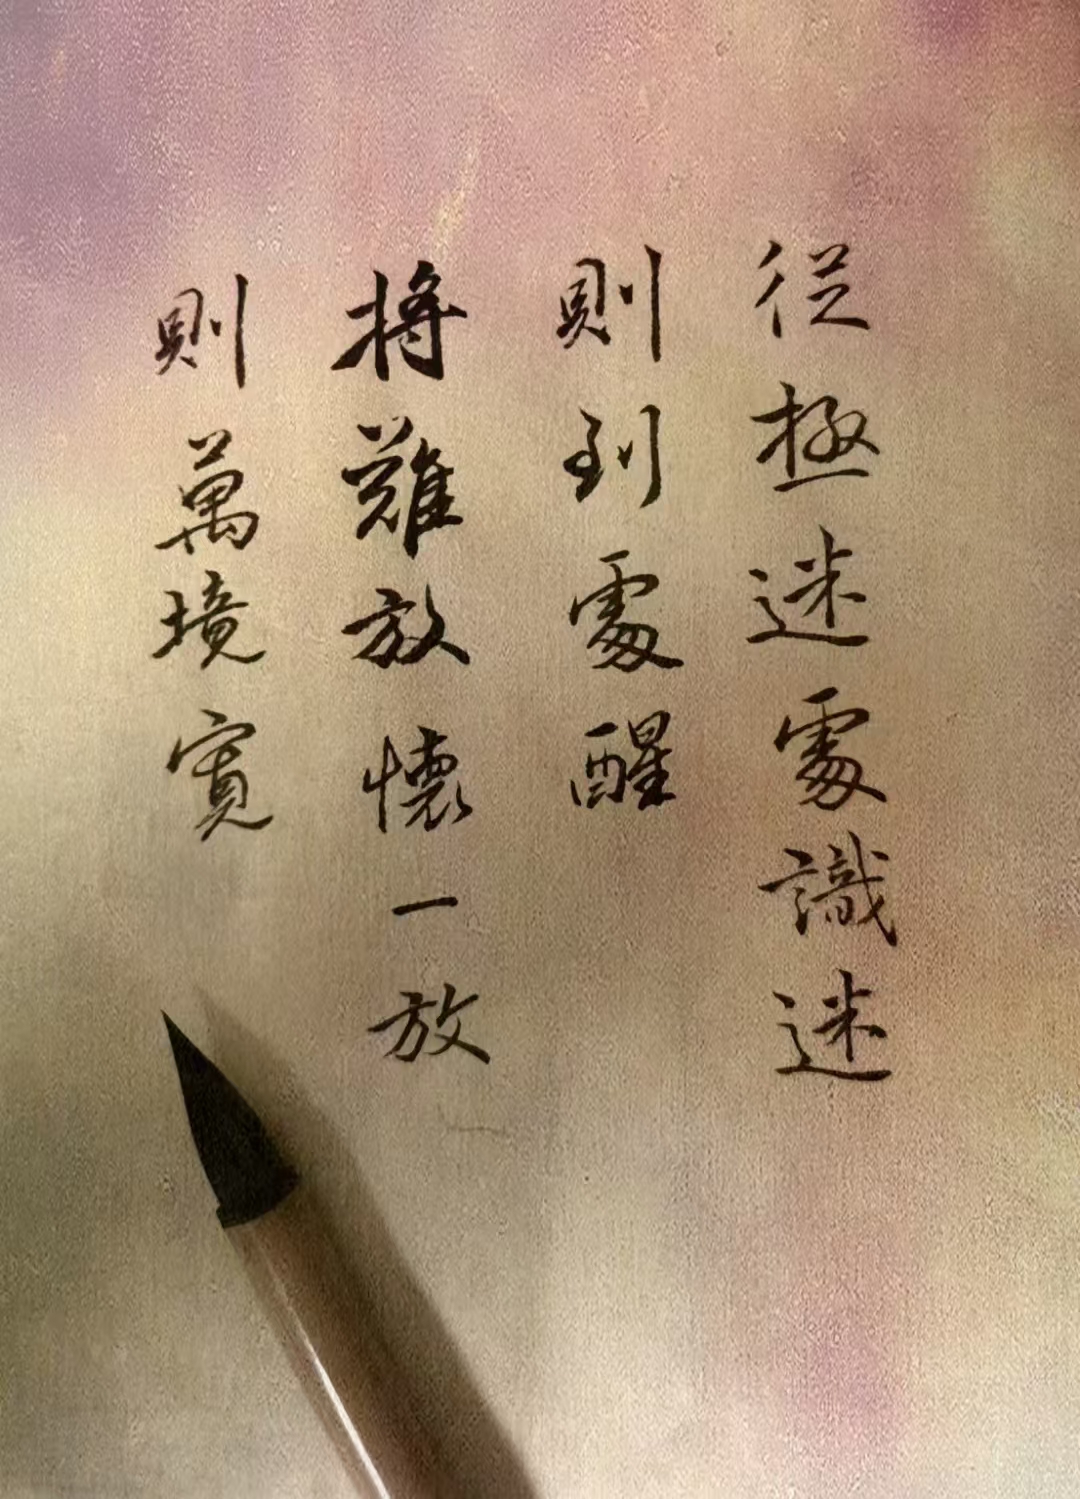 從極迷處識迷
則到處醒
將難放懷一放
則萬境寬